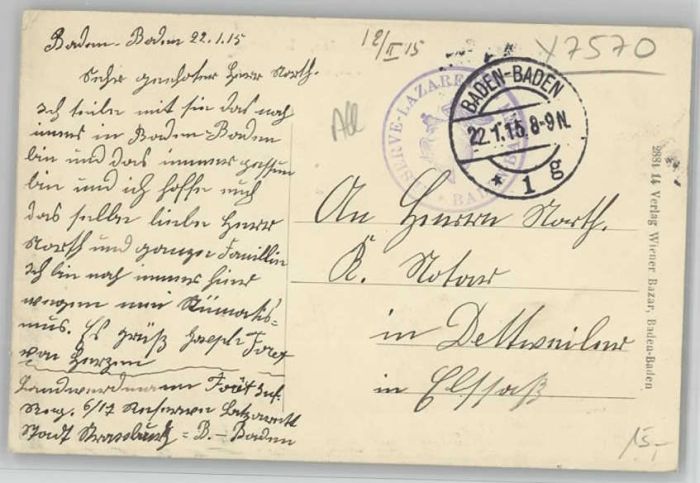 Baden-Baden 22.1.15
Sehr geehrter Herr North.
Ich teile mit sie das noch
immer in Baden-Baden
bin und das immer gessun
bin und ich hoffe euch
das selbe liebe Herr
North und ganze Famillin
Ich bin noch immer hier
wegen mein Rümatis-
mus. Es grüß
von Herzen
Landwerdmann
Reg. 6/17 Reserwe Lazarett
Stadt Strassburg = B.-Baden
12/II 15
X7570
All
RESERVE-LAZARE
BADEN-BADEN
BADEN-BADEN
22.1.15.8-9N.
* 1 g
An Herrn North.
K. Notar
in Dettweiler
in Elssaß
2881 14 Verlag Wiener Bazar, Baden-Baden
15,-